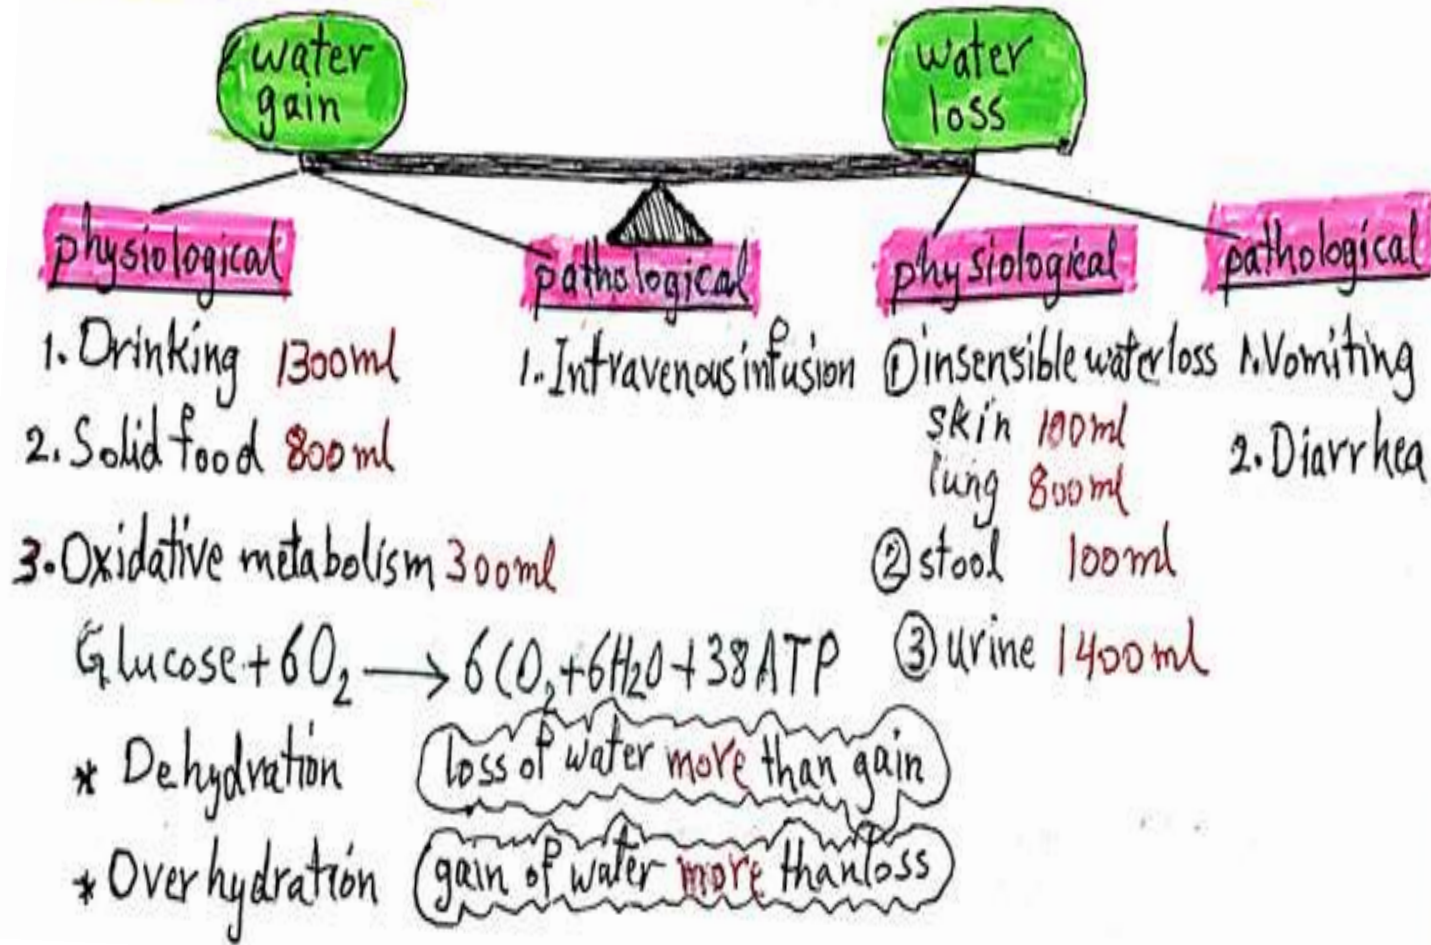 water
gain
water
loss
physiological
1. Drinking 1300ml
2. Solid food 800ml
3. Oxidative metabolism 300ml
Glucose + 6O₂ → 6CO₂ + 6H₂O + 38ATP
pathological
1. Intravenous infusion
physiological
① insensible water loss
skin 100ml
lung 800ml
② stool 100ml
③ urine 1400ml
pathological
1. Vomiting
2. Diarrhea
* Dehydration loss of water more than gain
* Overhydration gain of water more than loss